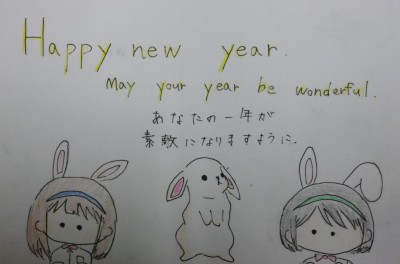 Happy new year.
May your year be wonderful.
あなたの一年が
素敵になりますように.